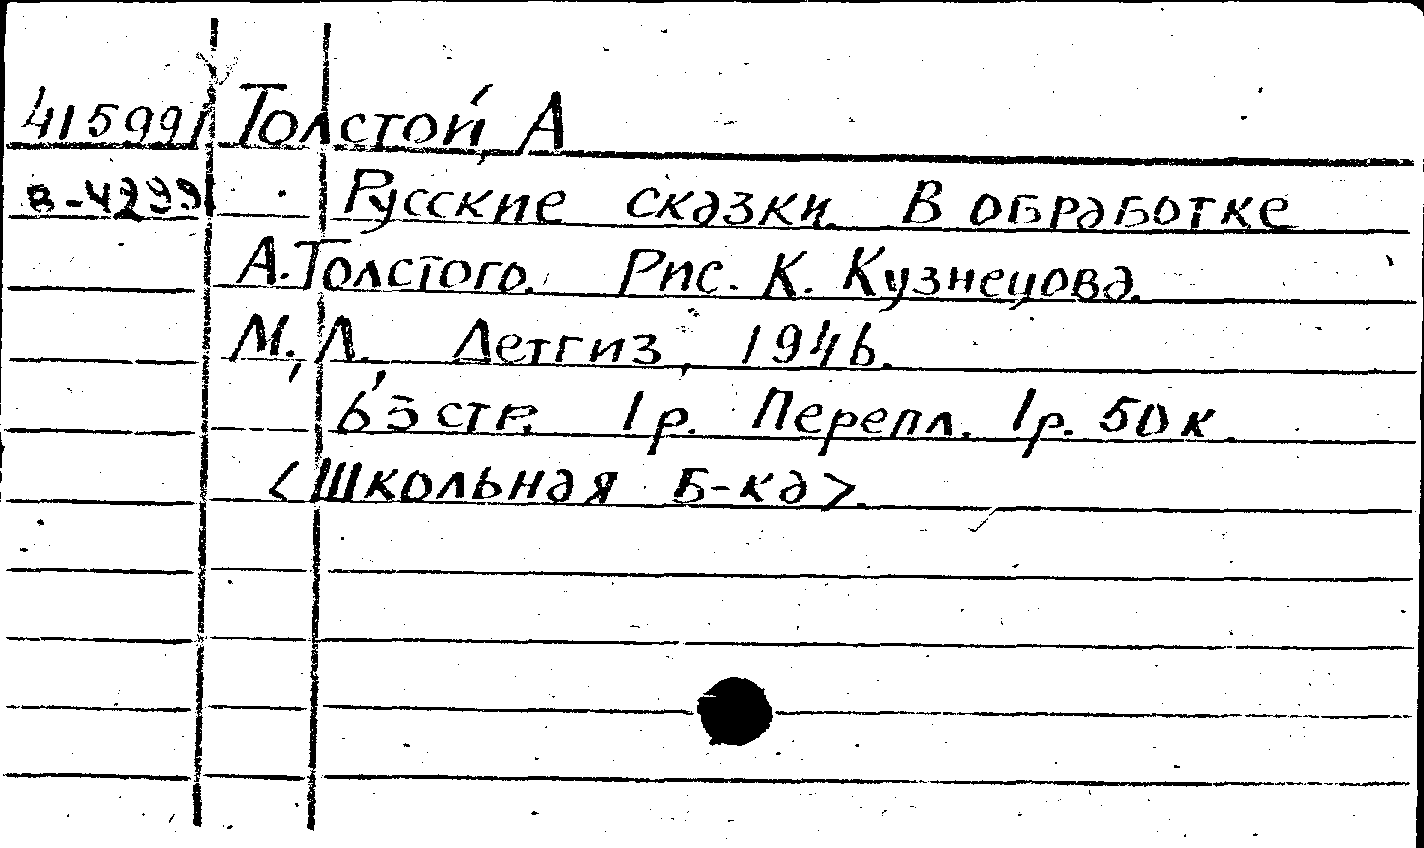 415991 Толстой, А
в-4299 Русские сказки. В обработке
А.Толстого. Рис. К. Кузнецова.
М., Л., Детгиз, 1946.
63 стр. 1 р. Перепл. 1р. 50 к.
<Школьная Б-ка>.